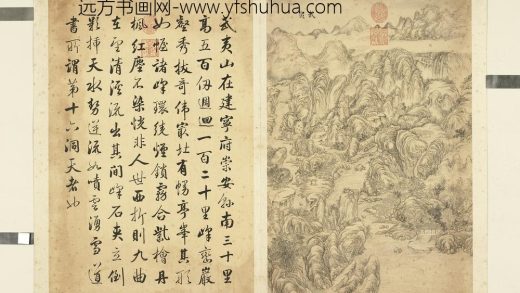 远方书画网- www.yfshuhua.com
武夷
武夷山在建寧府崇安縣南三十里
高五百仞週迴一百二十里峰巒巖
壑秀拔奇偉壯有幔亭峯其形
如幄諸峰環繞煙鎖霧合紫檜丹
楓紅塵不染恍非人世西折則九曲
在望清溪流出其間峰石夾立倒
影插天水勢逆流如賁雲湧雪道
書所謂第十六洞天者也